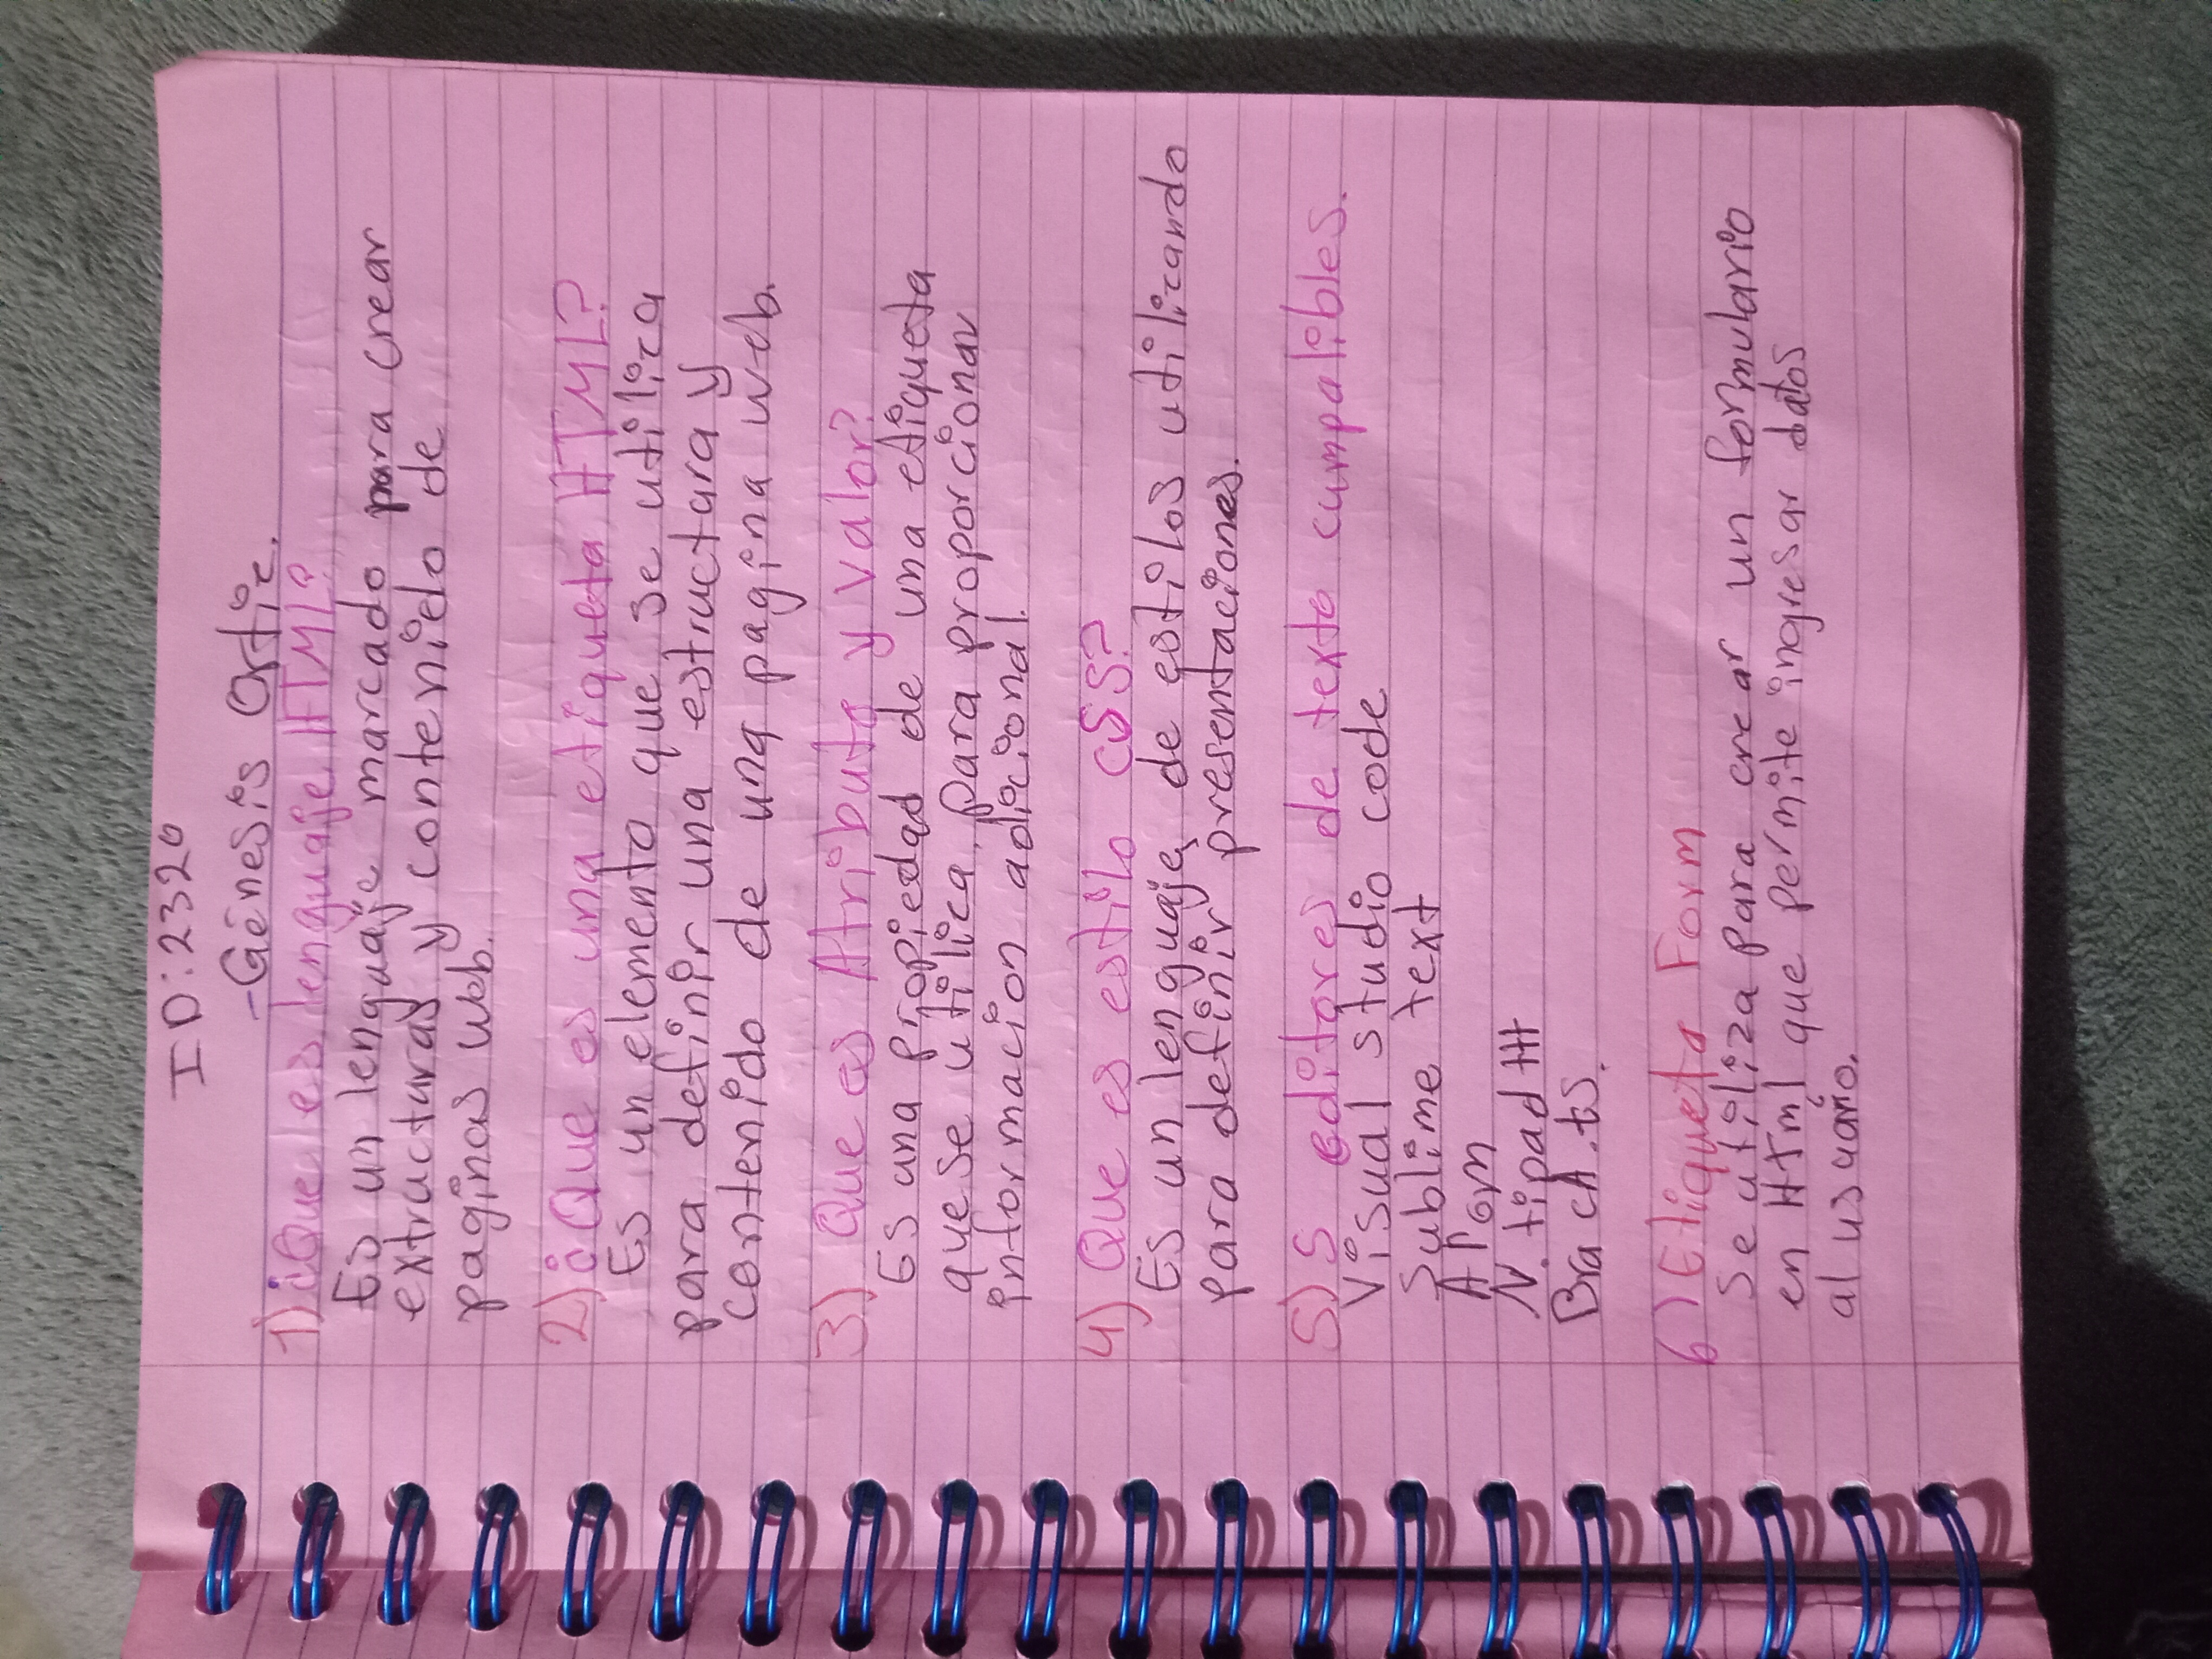 ID: 2320
-Génesis Ortiz.
1) ¿Que es lenguaje HTML?
Es un lenguaje marcado para crear
extructuras y contenido de
paginas web.
2) ¿Que es una etiqueta HTML?
Es un elemento que se utiliza
para definir una estructara y
contenido de una pagina web.
3) Que es Atributo y valor?
Es una propiedad de una etiqueta
que se utiliza para proporcionar
informacion adicional.
4) Que es estilo CSS?
Es un lenguaje de estilos utilizando
para definir presentaciones.
5) 5 editores de texto cumpalibles.
Visual studio code
Sublime text
Atom
N. tipad ++
Bra cA.ts.
6) Etiqueta Form
Se utiliza para crear un formulario
en HTml que permite ingresar datos
al usuario.